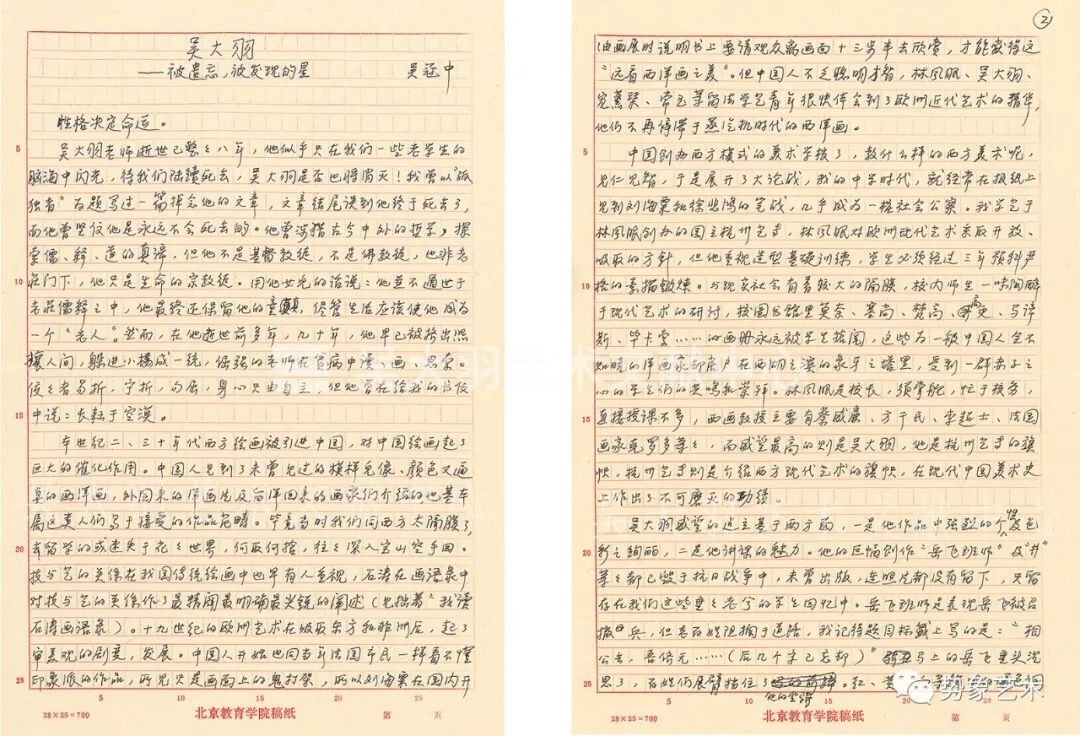 吴大羽
——被遗忘,被发现的星　吴冠中
性格决定命运。
吴大羽老师逝世已整整八年,他似乎只在我们一些老学生的
脑海中闪光,待我们陆续死去,吴大羽是否也将消灭!我曾以“孤
独者”为题写过一篇悼念他的文章,文章结尾谈到他终于死去了,
而他曾坚信他是永远不会死去的。他曾深搜古今中外的哲学,探
索儒、释、道的真谛,但他不是基督教徒,不是佛教徒,也非老
庄门下,他只是生命的宗教徒。用他女儿的话说:他并不遁世于
老庄儒释之中,他最终还保留他的童真,尽管生活应该使他成为
一个“老人”。然而,在他逝世前多年,几十年,他早已被挤出熙
攘人间,躲进小楼成一统,倔强的老师在贫病中读、画、思索。
佼佼者易折,宁折,勿屈,身心只由自主,但他曾在给我的书信
中说:长耘于空漠。
本世纪二、三十年代西方绘画被引进中国,对中国绘画起了
巨大的催化作用。中国人见到了未曾见过的模样儿像、颜色又逼
真的西洋画,外国来的洋画片及留洋回来的画家们介绍的也基本
属这类人们易于接受的作品范畴。毕竟当时我们同西方太隔膜了,
去留学的或迷失于花花世界,何取何舍,往往深入宝山空手回。
技与艺的关系在我国传统绘画中也早有人重视,石涛在画语录中
对技与艺的关系作了最精辟最明确最尖锐的阐述(见拙著“我读
石涛画语录”)。十九世纪的欧洲艺术在吸取东方和非洲后,起了
审美观的剧变,发展。中国人开始也同当年法国市民一样看不懂
印象派的作品,所见只是画面上的鬼打架,所以刘海粟在国内开
28×25=700　北京教育学院稿纸　第　页
2)
油画展时说明书上要请观众离画面十三步半去欣赏,才能获得这
“远看西洋画之美”。但中国人不乏聪明才智,林风眠、吴大羽、
倪贻德、常玉等留法学艺青年很快体会到了欧洲近代艺术的精华,
他们不再停滞于蒸汽机时代的西洋画。
中国创办西方模式的美术学校了,教什么样的西方美术呢,
见仁见智,于是展开了大论战,我的中学时代,就经常在报纸上
见到刘海粟和徐悲鸿的笔战,几乎成为一桩社会公案。我学艺于
林风眠创办的国立杭州艺专,林风眠对欧洲现代艺术采取开放、
吸取的方针,但他重视造型基础训练,学生必须经过三年预科严
格的素描锻炼。与现实社会有着较大的隔膜,校内师生一味陶醉
于现代艺术的研讨,校图书馆里莫奈、塞尚、梵高、高更、马蒂
斯、毕卡索……的画册永远被学生摊阅,这些为一般中国人全不
知晓的洋画家却在西湖之滨的象牙之塔里,受到一群赤子之
心的学生们的共鸣和崇拜。林风眠是校长,须掌舵,忙于校务,
直接授课不多,西画教授主要有蔡威廉、方干民、李超士、法国
画家克罗多等等,而威望最高的则是吴大羽,他是杭州艺专的旗
帜,杭州艺专则是介绍西方现代艺术的旗帜,在现代中国美术史
上作出了不可磨灭的功绩。
吴大羽威望的建立基于两方面,一是他作品中强烈的个性及色
彩之绚丽,二是他讲课的魅力。他的巨幅创作“岳飞班师”及“井”
等等都已毁于抗日战争中,未曾出版,连照片都没有留下,只留
存在我们这些垂垂老兮的学生回忆中。岳飞班师是表现岳飞被召
撤兵,但老百姓阻拥于道路,我记得题目标签上写的是:“相
公去,吾侪无……(后几个字已忘却)”马上的岳飞垂头沉
思,百姓们展臂挡住了他的坐骑。红、黄、
28×25=700　北京教育学院稿纸　第　页
势象艺术